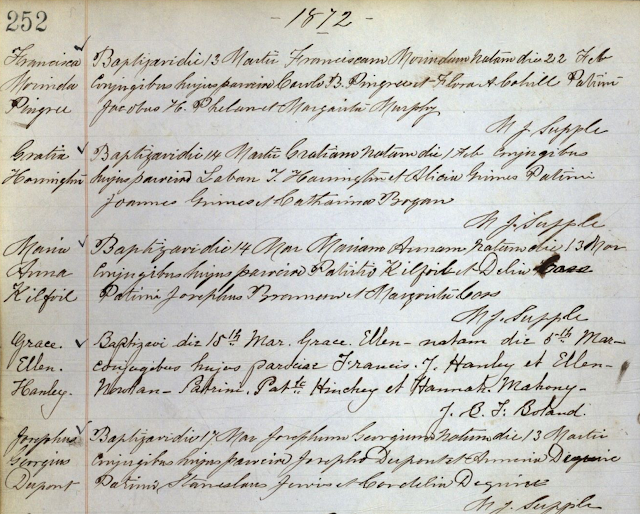 252
- 1872 -
Francisca Baptizavi die 13 Martii Franciscam Morindam natam die 22 Feb
Morinda conjugibus hujus paroeciae Carolo B. Pingree et Flora A Cahill Patrini
Pingree Jacobus H. Phelan et Margarita Murphy
M J. Supple
Gratia Baptizavi die 14 Martii Gratiam natam die 1 Feb conjugibus
Harrington hujus paroeciae Laban T. Harrington et Alicia Grimes Patrini
Joannes Grimes et Catharina Brogan
M J. Supple
Maria Baptizavi die 14 Mar Mariam Annam natam die 13 Mar
Anna conjugibus hujus paroeciae Patritio Kilfoil et Delia
Kilfoil Patrini Josephus et Margarita
M J. Supple
Grace. Baptizavi die 15th Mar. Grace. Ellen- natam die 5th Mar-
Ellen. conjugibus hujus paroeciae Francis. J. Hanley et Ellen-
Hanley. - Patrini. Pat. Hinchey et Hannah. Mahony-
J. E. F. Boland
Josephus Baptizavi die 17 Mar Josephum Georgium natum die 13 Martii
Georgius conjugibus hujus paroeciae Josepho Dupont et
Dupont Patrini Stanislaus et Cordelia Deguire
M J. Supple